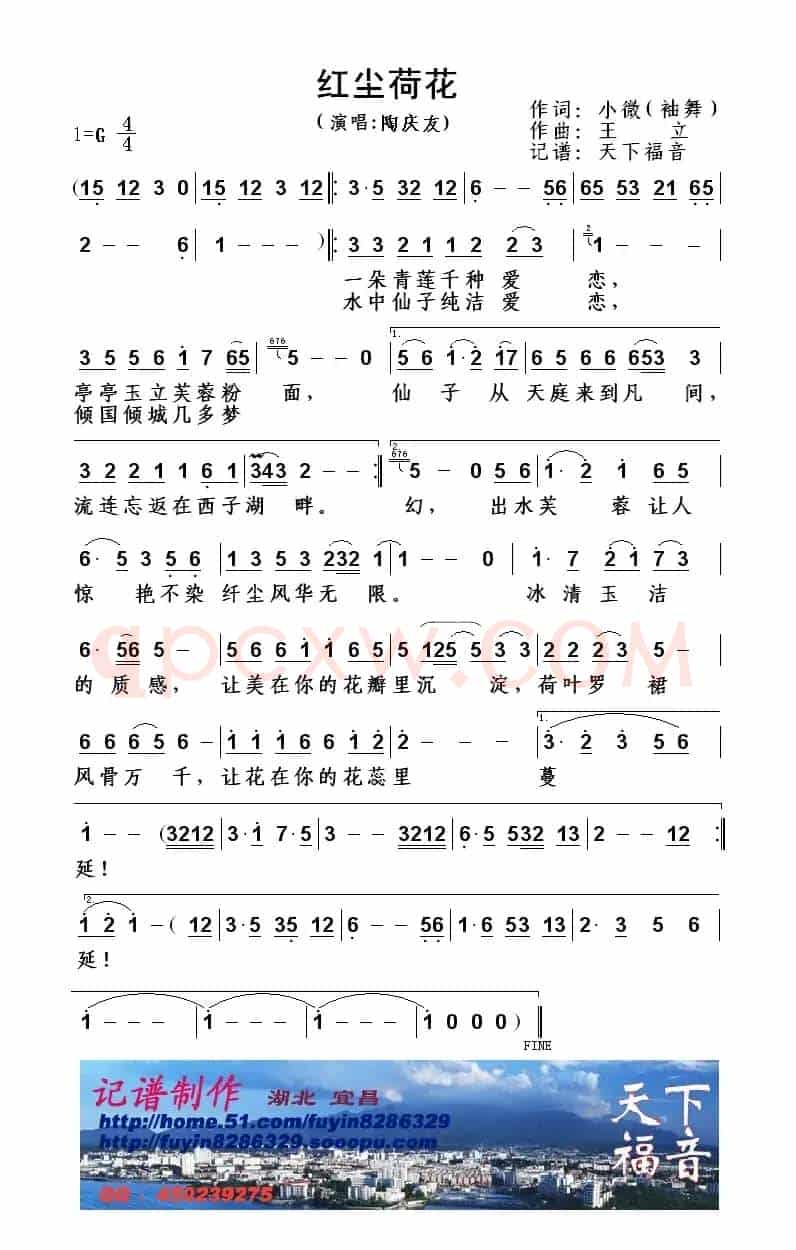 红尘荷花
(演唱:陶庆友)
作词: 小微(袖舞)
作曲: 王 立
记谱: 天下福音
1=G 4/4
(15 12 3 0 | 15 12 3 12 ‖: 3·5 32 12 | 6 - - 56 | 65 53 21 65 |
2 - - 6 | 1 - - - ) ‖: 3 3 2 1 1 2 2 3 | 2 1 - - - |
一朵青莲千种 爱 恋,
水中仙子纯洁 爱 恋,
1.
3 5 5 6 1 7 65 | 676 5 - - 0 | 5 6 1·2 17 | 6 5 6 6 653 3 |
亭亭玉立芙蓉粉 面, 仙 子 从 天庭来到凡 间,
倾国倾城几多梦
2.
3 2 2 1 1 6 1 | 3432 - - :‖ 676 5 - 0 5 6 | 1·2 1 65 |
流连忘返在西子湖 畔。 幻, 出水芙 蓉让人
6·5 3 5 6 | 1 3 5 3 232 1 | 1 - - 0 | 1·7 2 1 7 3 |
惊 艳不染 纤尘风华无 限。 冰清玉 洁
6·56 5 - | 5 6 6 1 1 6 5 | 5 125 5 3 3 | 2 2 2 3 |
qpcxw.COM
的质感, 让美在你的花瓣里沉 淀,荷叶罗 裙
1.
6 6 6 5 6 - | 1 1 1 6 6 1 2 | 2 - - - | 3·2 3 5 6 |
风骨万 千,让花在你的花蕊里 蔓
1 - - (3212 | 3·1 7·5 | 3 - - 3212 | 6·5 532 13 | 2 - - 12 :‖
延!
2.
1 2 1 - ( 12 | 3·5 35 12 | 6 - - 56 | 1·6 53 13 | 2· 3 5 6 |
延!
1 - - - | 1 - - - | 1 - - - | 1 0 0 0 ) ‖
FINE
记谱制作 湖北 宜昌
http://home.51.com/fuyin8286329
http://fuyin8286329.sooopu.com
QQ:450239275
天下
福音